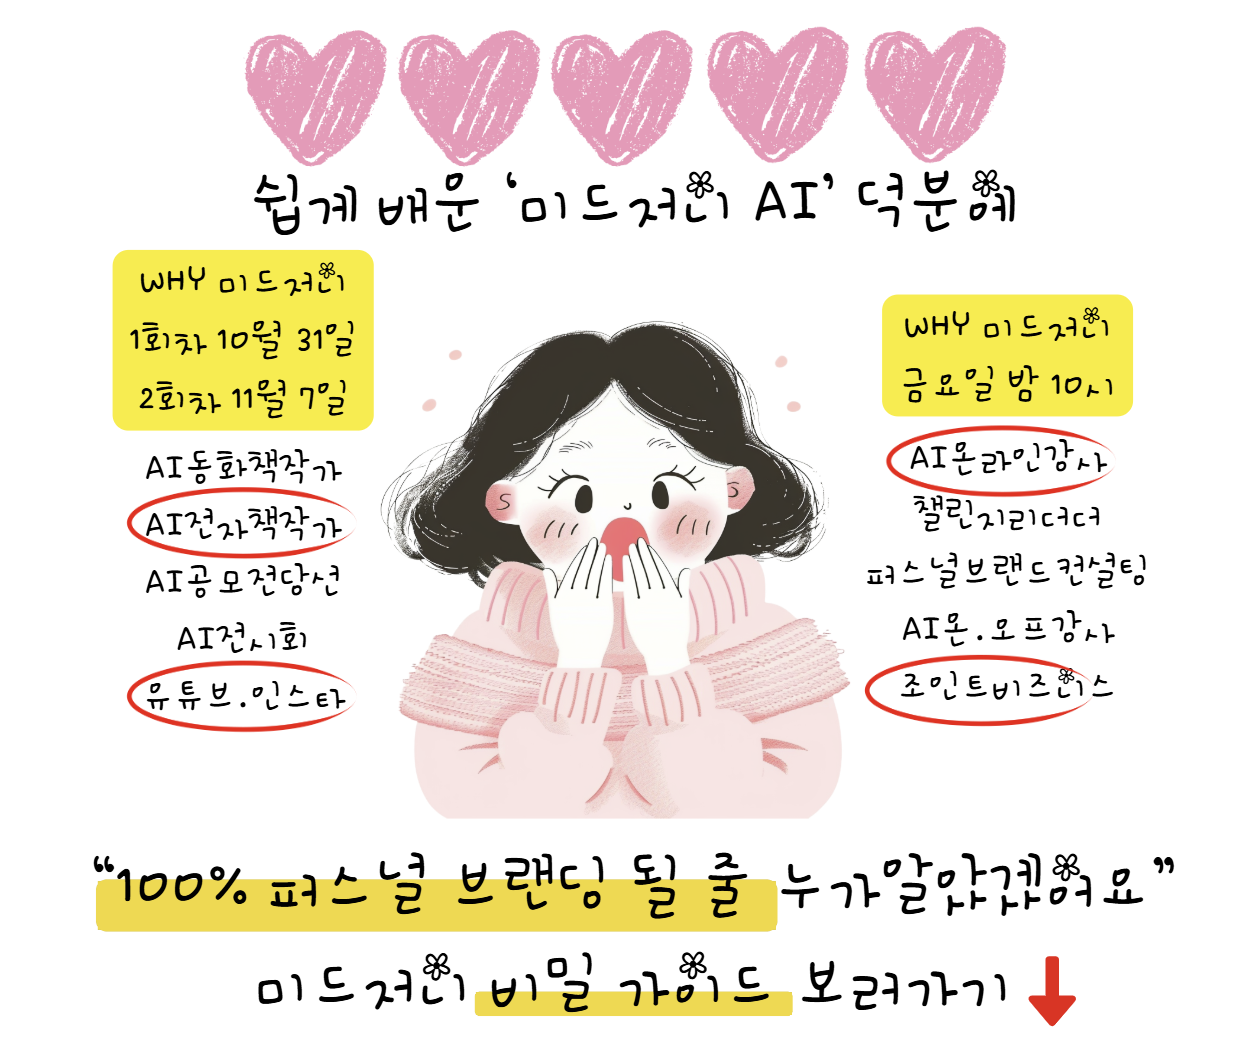 쉽게 배운 ‘미드저니 AI’ 덕분에
WHY 미드저니
1회차 10월 31일
2회차 11월 7일
AI동화책작가
AI전자책작가
AI공모전당선
AI전시회
유튜브.인스타
WHY 미드저니
금요일 밤 10시
AI온라인강사
챌린지리더더
퍼스널브랜드컨설팅
AI온.오프강사
조인트비즈니스
“100% 퍼스널 브랜딩 될 줄 누가알았겠어요”
미드저니 비밀 가이드 보러가기